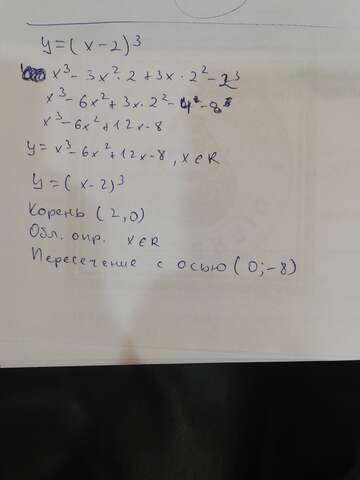 y=(x-2)³
x³-3x²·2+3x·2²-2³
x³-6x²+3x·2²-8
x³-6x²+12x-8
y=x³-6x²+12x-8, x∈R
y=(x-2)³
Корень (2,0)
Обл. опр. x∈R
Пересечение с осью (0;-8)